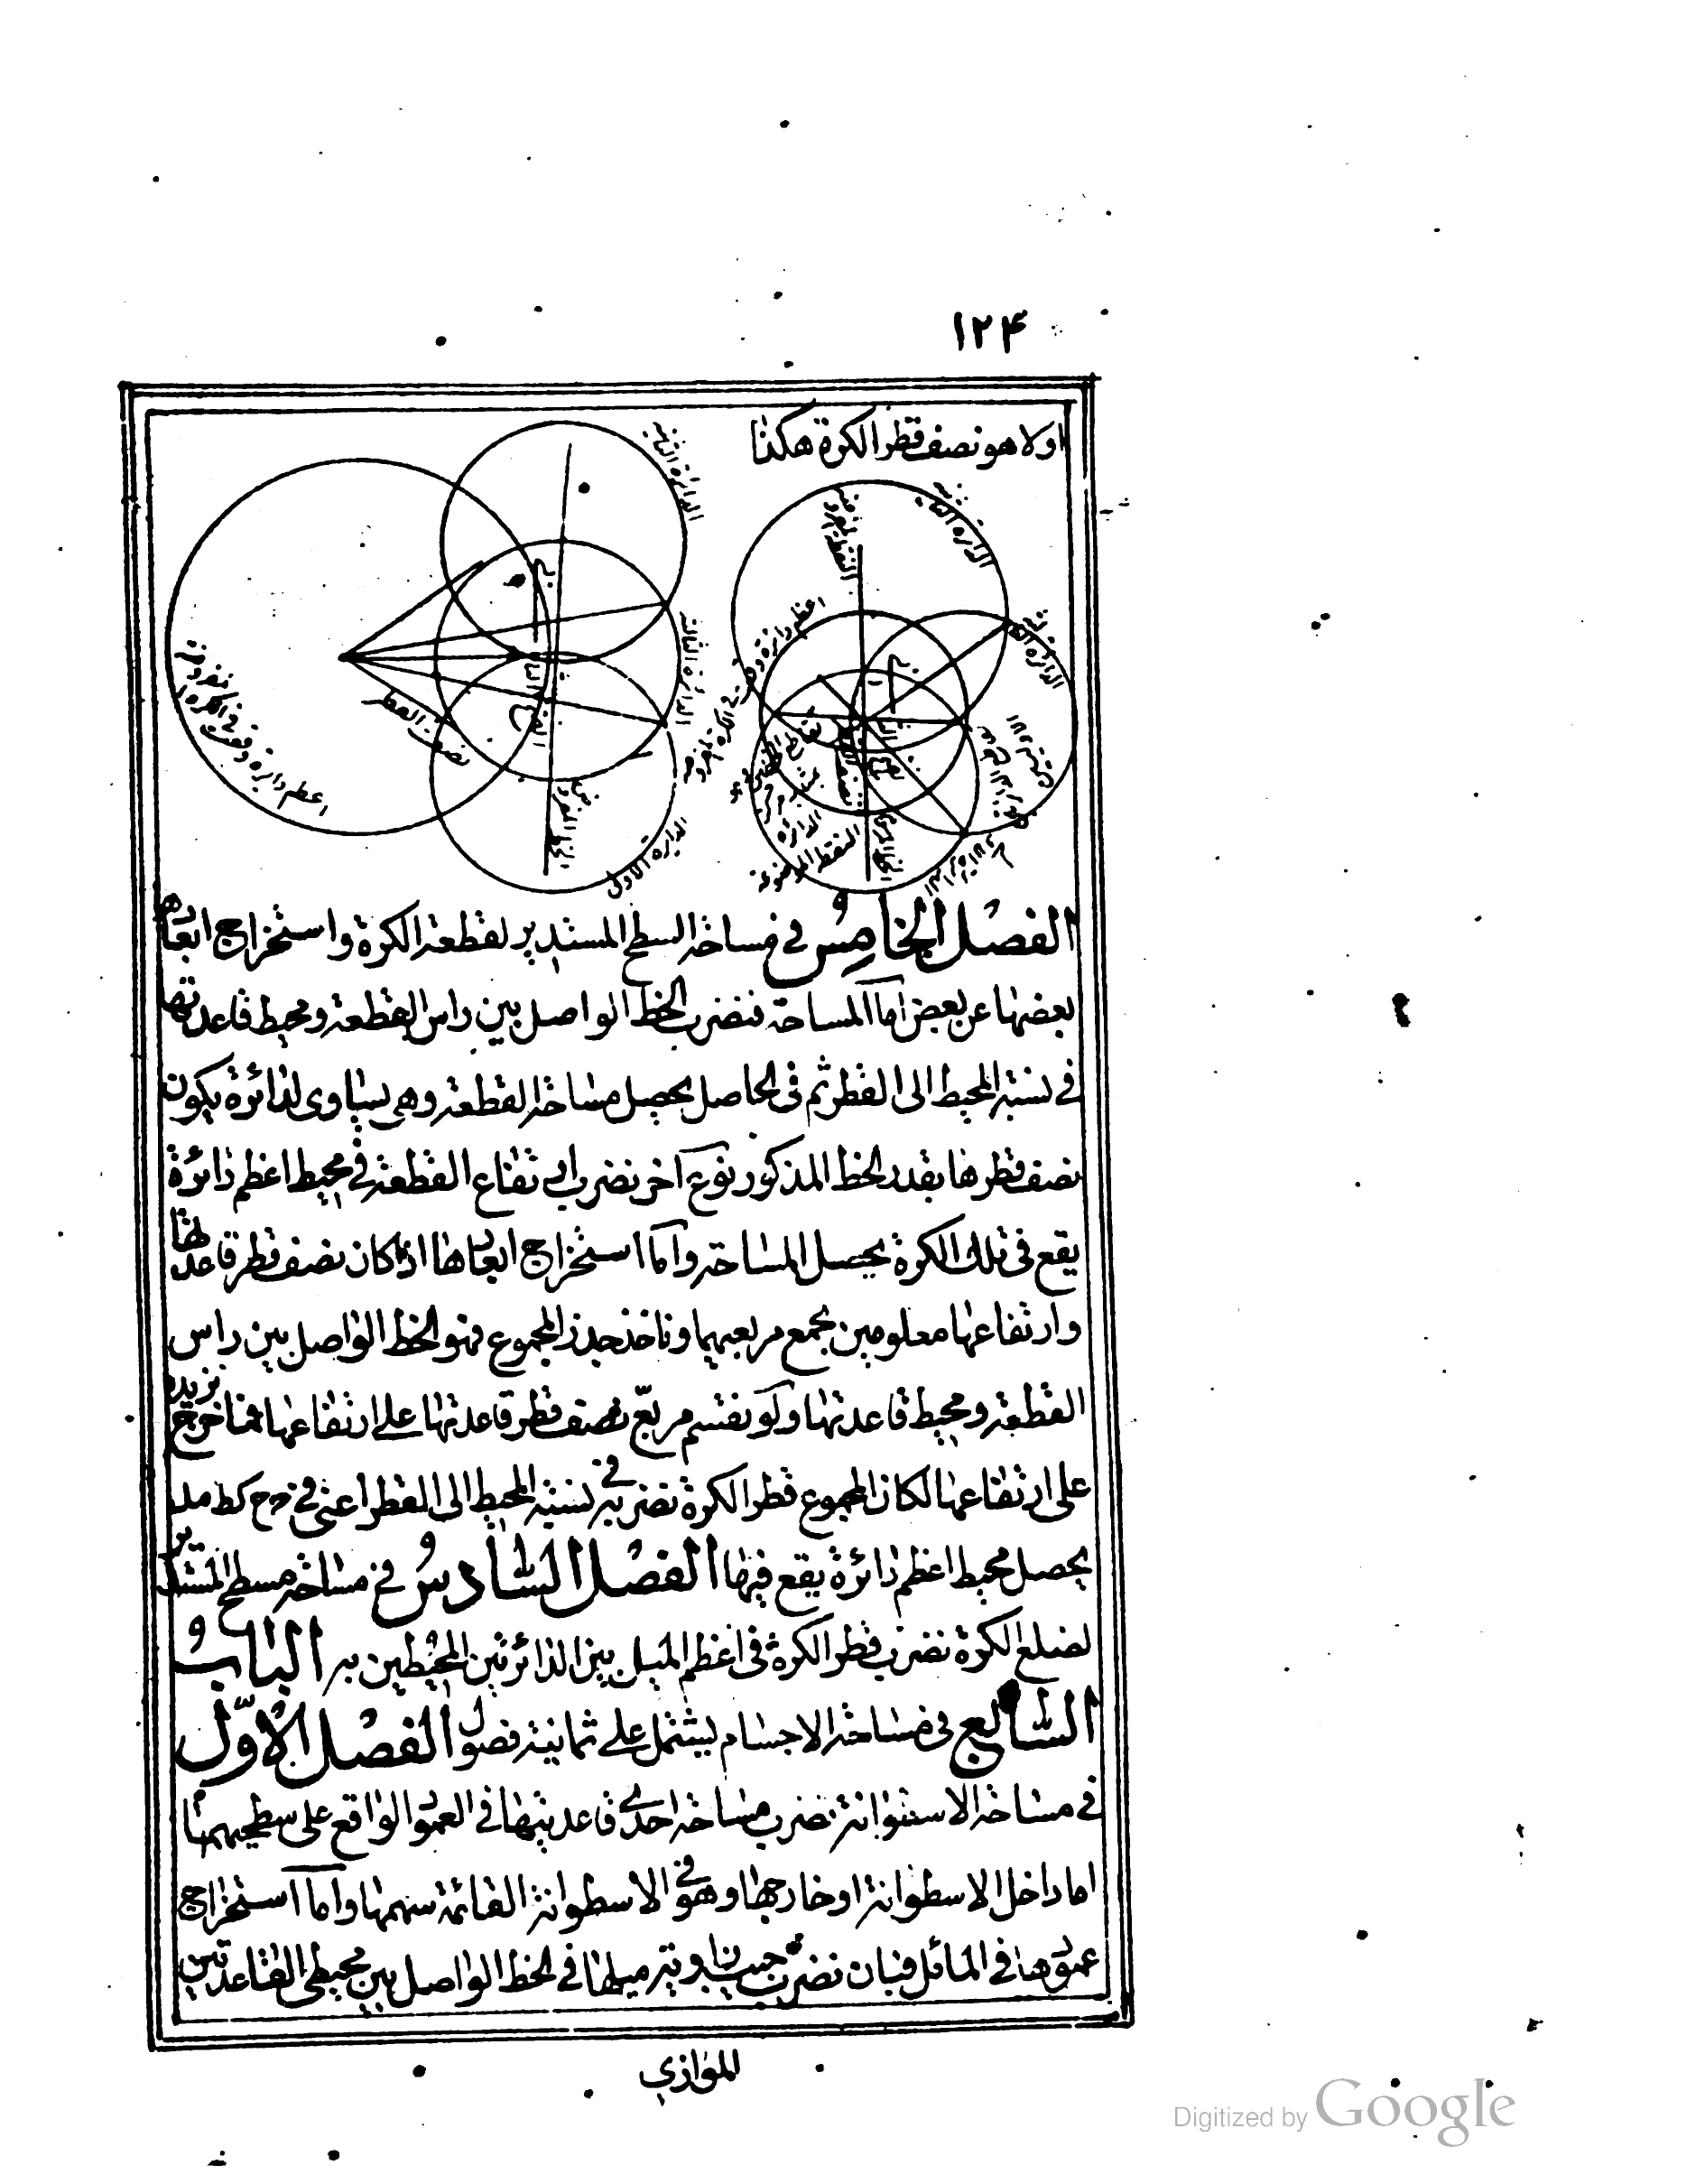 ١٢۴
اولا هو نصف قطر الكرة هكذا
الدائرة الثانية
الدائرة الثانية
الدائرة الثالثة
الدائرة الثالثة
نصف القطر
اعظم دائرة وقعت فى الكرة المفروضة
اعظم دائرة وقعت فى الكرة المفروضة
الدائرة الاولى
الفصل الخامس في مساحة السطح المستدير لقطعة الكرة واستخراج ابعادها
بعضها عن بعض اما المساحة فنضرب الخط الواصل بين راس القطعة ومحيط قاعدتها
في نسبة المحيط الى القطر ثم فى الحاصل يحصل مساحة القطعة وهى يساوى لدائرة يكون
نصف قطرها بقدر الخط المذكور نوع آخر نضرب ارتفاع القطعة في محيط اعظم دائرة
يقع فى تلك الكرة يحصل المساحة واما استخراج ابعادها اذا كان نصف قطر قاعدتها
وارتفاعها معلومين نجمع مربعيهما وناخذ جذر المجموع فهو الخط الواصل بين راس
القطعة ومحيط قاعدتها ولو نقسم مربع نصف قطر قاعدتها على ارتفاعها فما خرج نزيده
على ارتفاعها لكان المجموع قطر الكرة نضربه في نسبة المحيط الى القطر اعنى فى ج ح كط مد
يحصل محيط اعظم دائرة يقع فيها الفصل السادس في مساحة مسطح المستدير
لضلع الكرة نضرب قطر الكرة فى اعظم الميل بين الدائرتين المحيطين به الباب
السابع فى مساحة الاجسام يشتمل على ثمانية فصول الفصل الاول
في مساحة الاستوانة نضرب مساحة احدى قاعدتيها في العمود الواقع على سطحيهما
اما داخل الاسطوانة او خارجها وهو في الاسطوانة القائمة سهمها واما استخراج
عمودها في المائل فبان نضرب جيب زاوية ميلها في الخط الواصل بين محيطى القاعدتين
الموازي
Digitized by Google